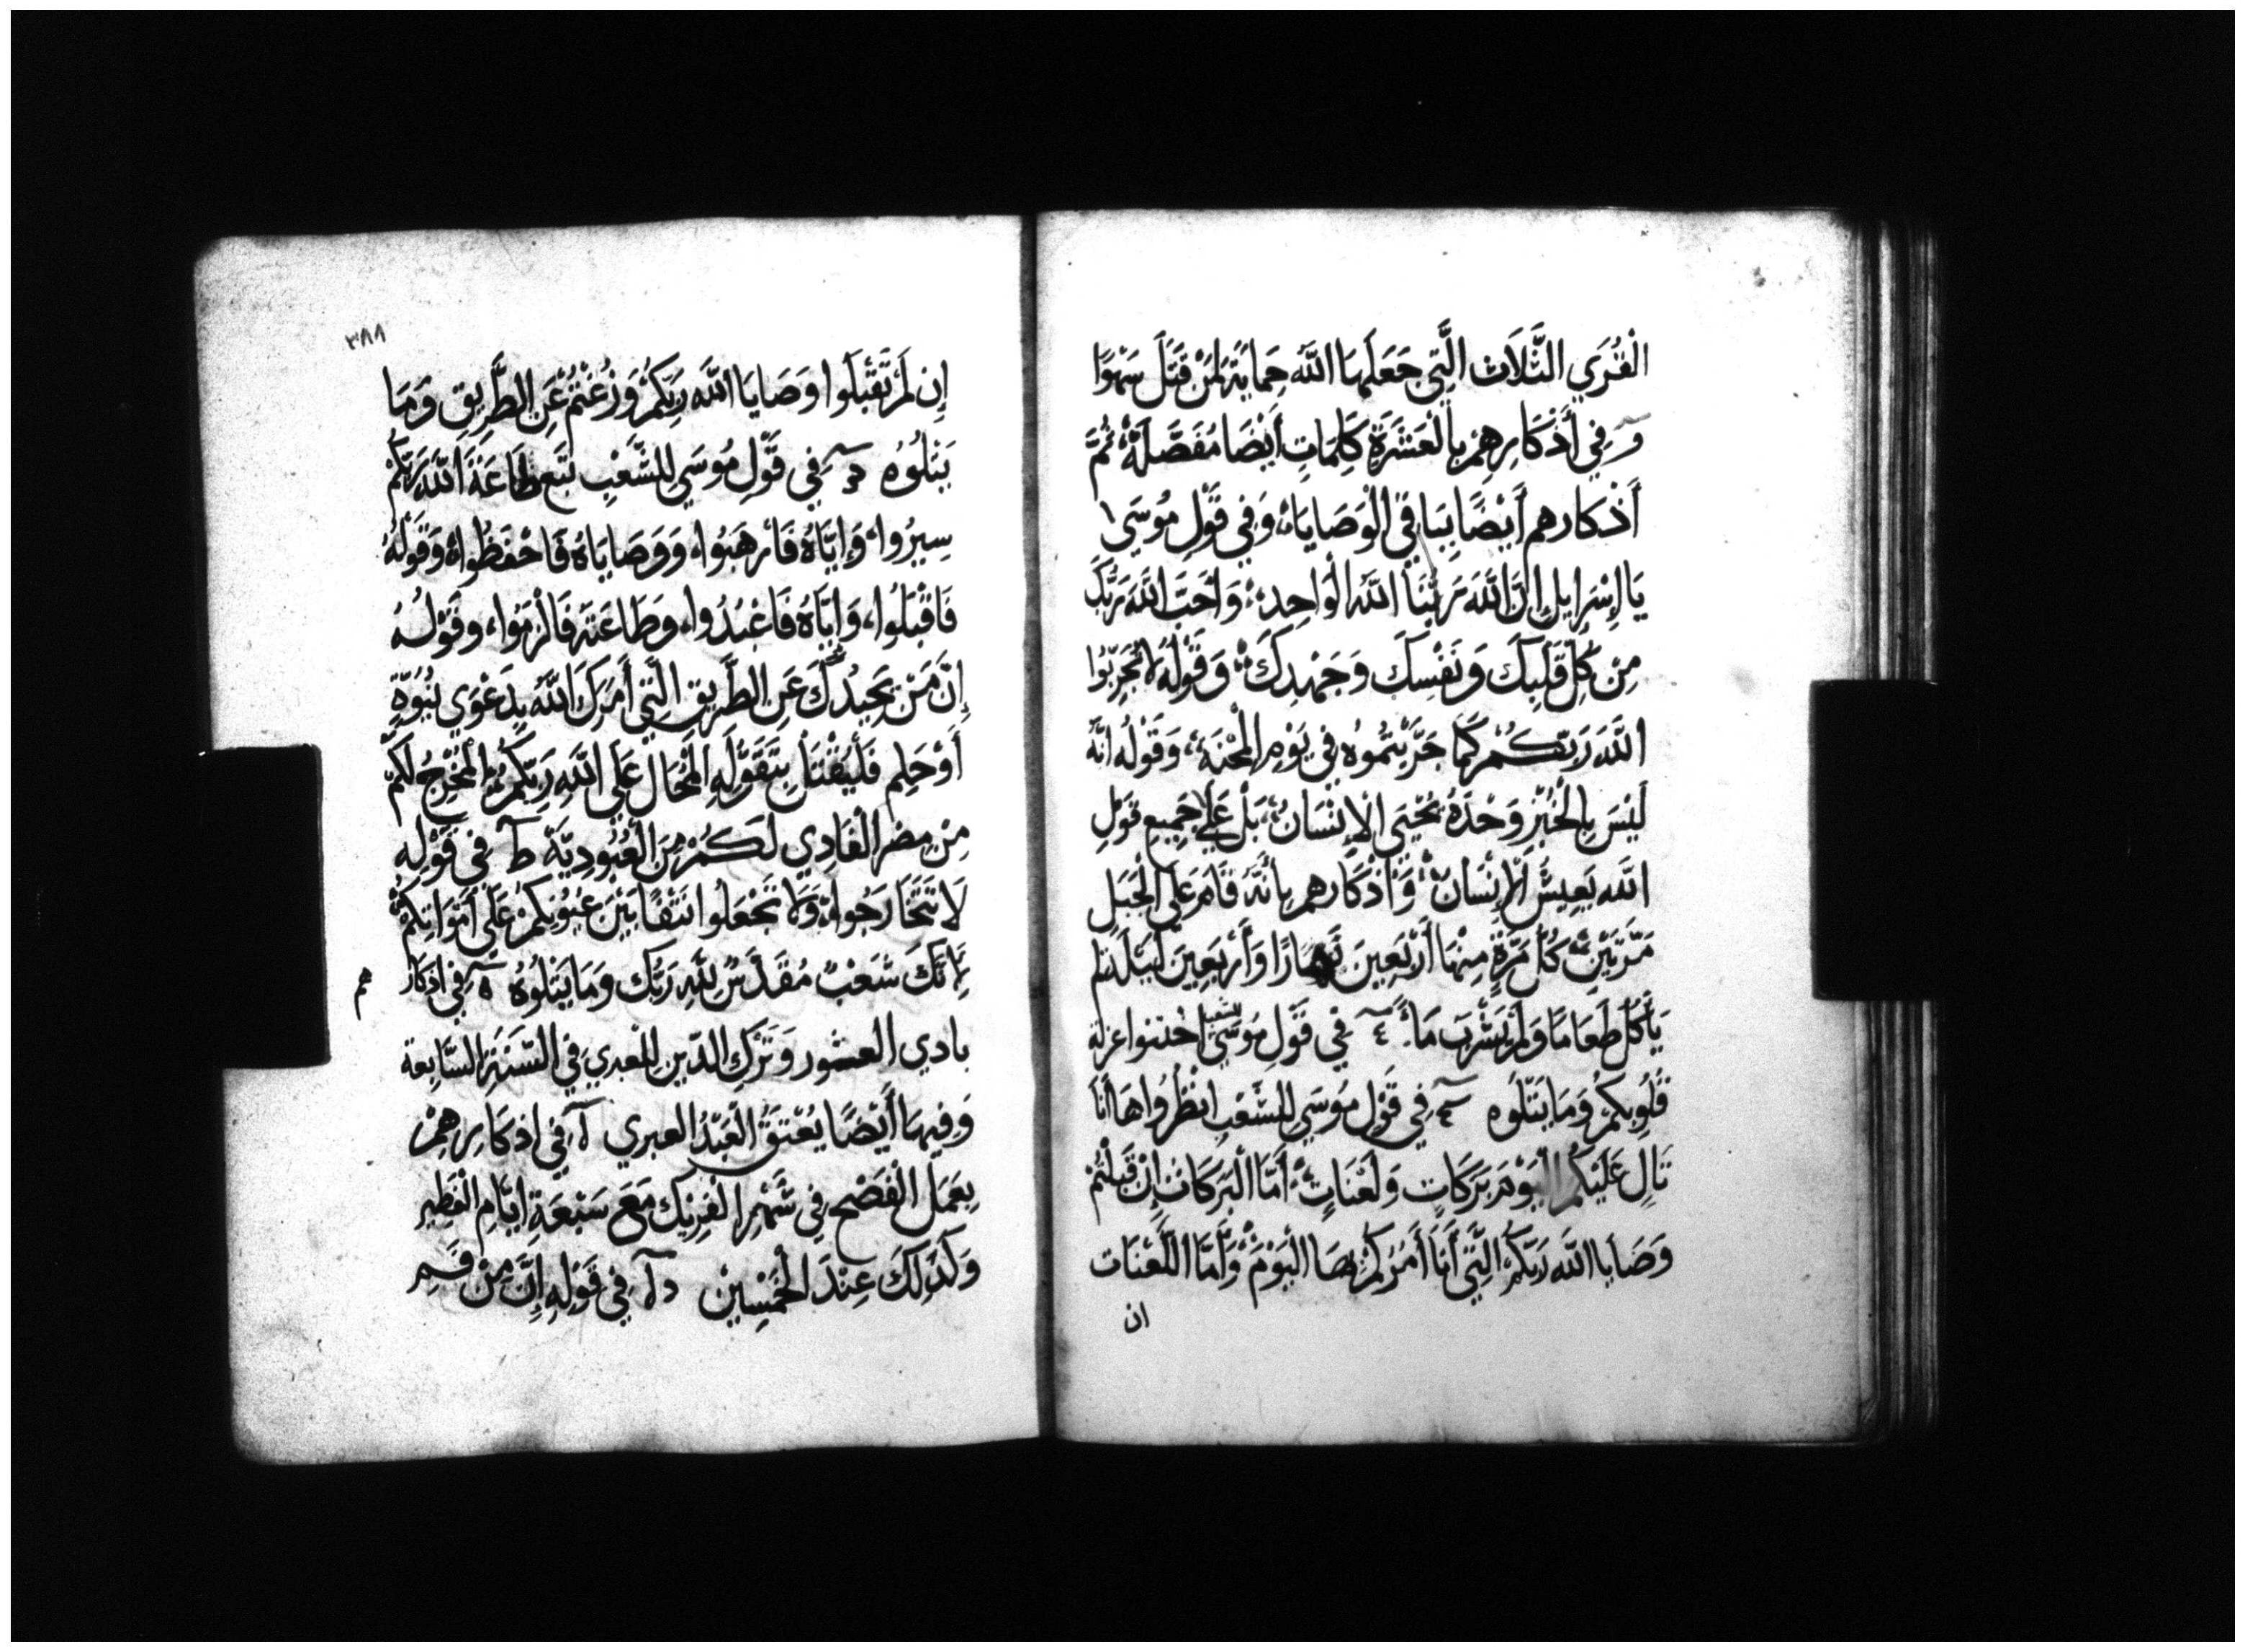 الْقُرَي الثَّلَاث الَّتِي جَعَلَهَا اللَّه حِمَايَةً لِمَنْ قَتَلَ سَهْوًا
وفِي أَذْكَارِهِمْ بِالْعَشَرَةِ كَلِمَاتٍ أَيْضًا مُفَصَّلَةً ثُمَّ
أَذْكَارهم أَيْضًا بِبَاقِي الْوَصَايَا وَفِي قَوْلِ مُوسَي
يَا إِسْرَايِل إِنَّ اللَّه رَبَّنَا اللَّهُ الْوَاحِد وَأَحِبَّ اللَّهَ رَبَّكَ
مِن كُلِّ قَلْبِكَ وَنَفْسِكَ وَجَهْدِكَ وَقَوْلُهُ لَا تُجَرِّبُوا
اللَّهَ رَبّكُمْ كَمَا جَرَّبْتُمُوهُ فِي يَوْمِ الْمِحْنَةِ وَقَوْلُه انَّهُ
لَيْسَ بِالْخُبْزِ وَحْدَهُ يَحْيَى الْإِنْسَانُ بَلْ عَلَي جَمِيعِ قَوْلِ
اللَّه يَعِيشُ الْإِنْسَانُ وَأَذْكَارهم بِأَنَّهُ قَامَ عَلَي الْجَبَلِ
مَرَّتَيْنِ كُلّ مَرَّةٍ مِنْهَا أَرْبَعِينَ نَهَارًا وَأَرْبَعِينَ لَيْلَة لم
يَأْكُل طَعَامًا وَلَمْ يَشْرَب مَاءً فِي قَوْلِ مُوسَي للشعب اخْتنوا عزلة
قُلُوبِكُمْ وَمَا يَتْلُوه فِي قَوْلِ مُوسَي لِلشَّعْبِ انْظُرُوا هَا أَنَا
تَالِ عَلَيْكُم الْيَوْم بَرَكَاتٍ وَلَعْنَاتٍ أَمَّا الْبَرَكَات إِنْ قَبِلْتُمْ
وَصَايَا اللَّه رَبّكُمْ الَّتِي أَنَا أَمُرُكُمْ بِهَا الْيَوْمَ وَأَمَّا اللَّعْنَات
ان
٣٨٨
إِن لَمْ تَقْبَلُوا وَصَايَا اللَّه رَبِّكُمْ وَزُغْتُمْ عَنِ الطَّرِيقِ وَمَا
يَتْلُوُه فِي قَوْلِ مُوسَي لِلشَّعْبِ تَبَع طَاعَة اللَّه رَبّكُمْ
سِيرُوا وَإِيَّاهُ فَارْهَبُوا وَوَصَايَاهُ فَاحْفَظُوا وَقَوْلَهُ
فَاقْبَلُوا وَإِيَّاهُ فَاعْبُدُوا وَطَاعَتَه فَالْزَمُوا وَقَوْلُهُ
إِنَّ مَنْ يَحِيدُكَ عَنِ الطَّرِيق الَّتِي أَمَرَكَ اللَّهُ بِدَعْوَي نُبُوَّةٍ
أَوْ حلِم فَلْيُقْتَل بِتَقَوُّلِهِ الْمُحَال عَلَي اللَّهِ رَبّكُمْ الْمُخْرِجُ لَكُمْ
مِنْ مِصْر الْفَادِي لَكُمْ مِنَ الْعُبُودِيَّةِ ط فِي قَوْلِهِ
لَا تَتَحَارَجُوا وَلَا تَجْعَلُوا نَتْفًا بَيْنَ عُيُونِكُمْ عَلَي أَمْوَاتِكُمْ
لِأَنَّكَ شَعْبٌ مُقَدَّسٌ لِلَّهِ رَبّك وَمَا يَتْلُوُهُ فِي اذكار هم
بادي العشور وَتَرْكِ الدّين للعبري فِي السَّنَةِ السَّابِعة
وَفِيهَا أَيْضًا يُعْتَقُ الْعَبْدُ العبري فِي اذكَارِهِمْ
بِعَمَل الْفَصْح فِي شَهْرِ الْفِرِيك مَعَ سَبْعَةِ ايَّامِ الْفَطِير
وَكَذَلِكَ عِنْدَ الْخَمْسِيْن فِي قَوْلِهِ إِنَّ مِنْ قسم